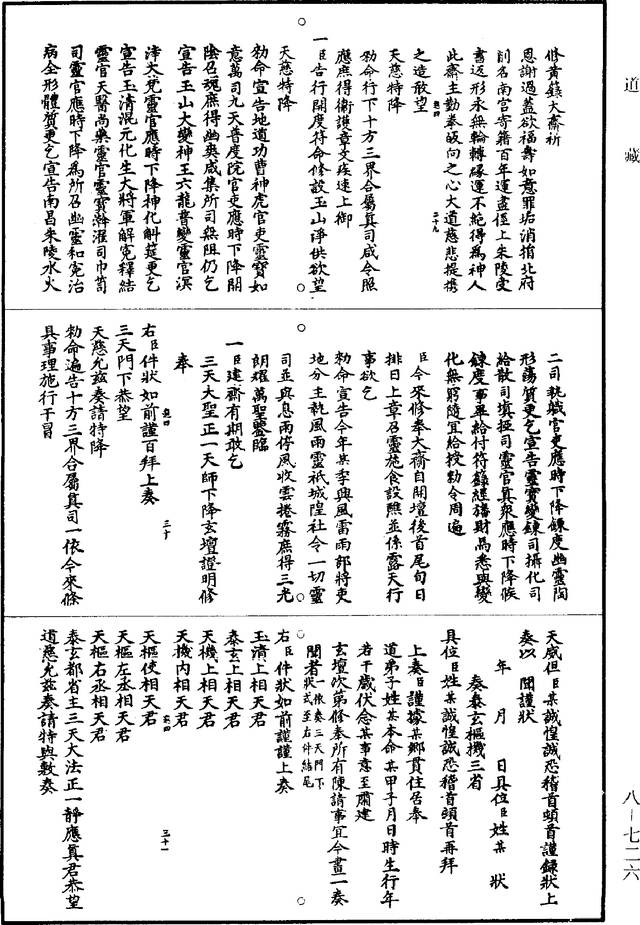 道藏
修黃籙大齋祈
恩謝過蓋欲福壽如意罪垢消捐北府
削名南宮寄籍百年運盡徑上朱陵受
書返形永無輪轉緣運不絕得為神人
此齋主勤拳皈向之心大道慈悲提携
之造敢望
天慈特降
勑命行下十方三界合屬真司咸令照
應庶得衛護章文疾速上御
一臣告行開度符命修設玉山淨供欲望
天慈特降
勑命宣告地道功曹神虎官吏靈寶如
意萬司九天普度院官吏應時下降開
陰召魂庶得幽爽咸集所司無阻仍乞
宣告玉山大變神王六龍普變靈官溟
涬大梵靈官應時下降神化斛筵更乞
宣告玉清混元化生大將軍解冤釋結
靈官天醫尚藥靈官靈寶澣濯司巾笥
司靈官應時下降為所召幽靈和冤治
病全形體質更乞宣告南昌朱陵水火
二司執職官吏應時下降鍊度幽靈陶
形蕩質更乞宣告靈寶變鍊司攝化司
給散司填掗司靈官真眾應時下降候
鍊度事畢給付符籙經旛財馬悉與變
化無窮隨宜給授勑令周遍
臣今來修奉大齋自開壇後首尾旬日
排日上章召靈施食設醮並係露天行
事欲乞
勑命宣告今年某季興風雷雨部將吏
地分主執風雨靈祇城隍社令一切靈
司並與息雨停風收雲捲霧庶得三光
朗耀萬聖鑒臨
一臣建齋有期敢乞
三天大聖正一天師下降玄壇證明修
奉
右臣件狀如前謹百拜上奏
三十
三天門下恭望
天慈允茲奏請特降
勑命遍告十方三界合屬真司一依今來條
具事理施行干冒
天威但臣某誠惶誠恐稽首頓首謹錄狀上
奏以聞謹狀
年月日具位臣姓某狀
奏泰玄樞機三省
具位臣姓某誠惶誠恐稽首頓首再拜
上奏臣謹據某鄉貫住居奉
道弟子姓某本命某甲子月日時生行年
若干歲伏念某事意至肅建
玄壇次第修奉所有陳請事宜今畫一奏
聞者一依奏三天門下狀式至右件結尾
右臣件狀如前謹謹上奏
玉清上相天君
泰玄上相天君
天機上相天君
天機內相天君
三十一
天樞使相天君
天樞左丞相天君
天樞右丞相天君
泰玄都省主三天大法正一靜應真君恭望
道慈允茲奏請特與敷奏
八－七二六